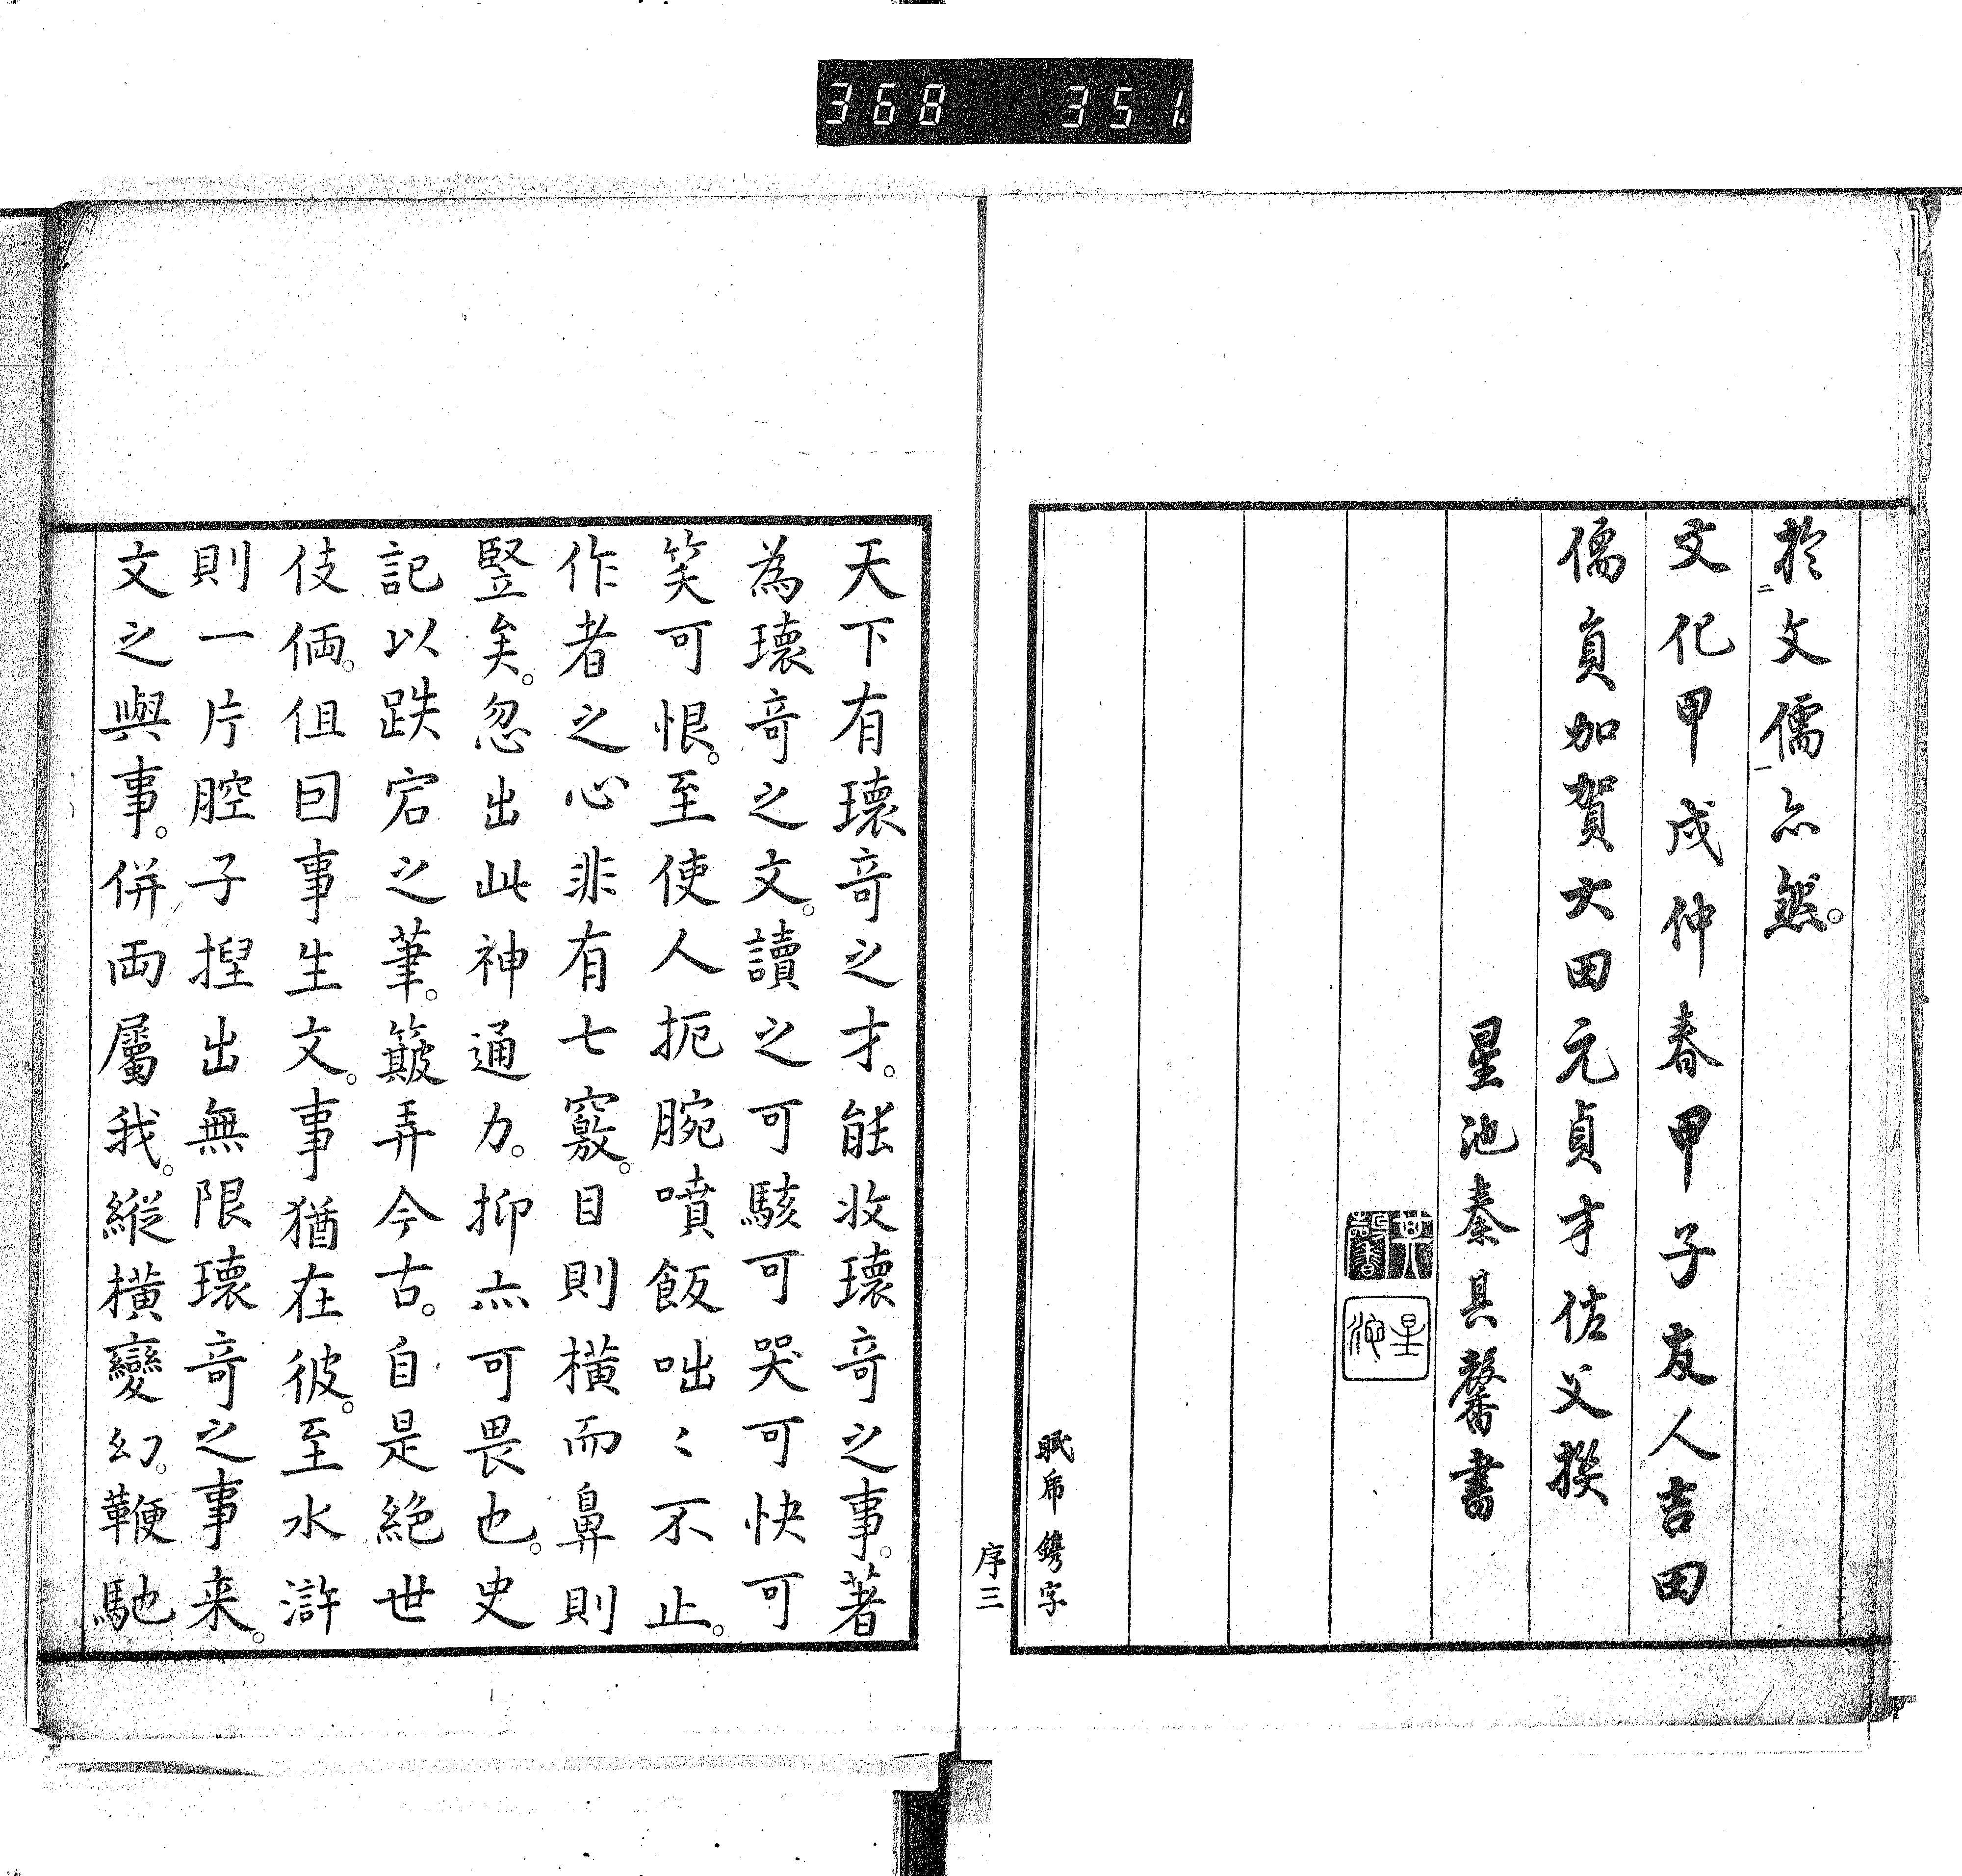 368 351
於二文儒一亦然。
文化甲戌仲春甲子友人吉田
儒員加賀大田元貞才佐父撰
星池秦其馨書
其馨
星池
字鐫
序三
天下有瓌竒之才。能收瓌竒之事。著
為瓌竒之文。讀之可駭可哭可快可
笑可恨。至使人扼腕噴飯咄〻不止。
作者之心非有七竅。目則橫而鼻則
豎矣。忽出此神通力。抑亦可畏也。史
記以跌宕之筆。簸弄今古。自是絶世
伎倆。但曰事生文。事猶在彼。至水滸
則一片腔子揑出無限瓌竒之事来。
文之與事。併両屬我。縦橫變幻。鞭馳